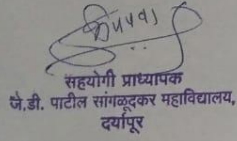 सहयोगी प्राध्यापक
जे.डी. पाटील सांगळूदकर महाविद्यालय,
दर्यापूर